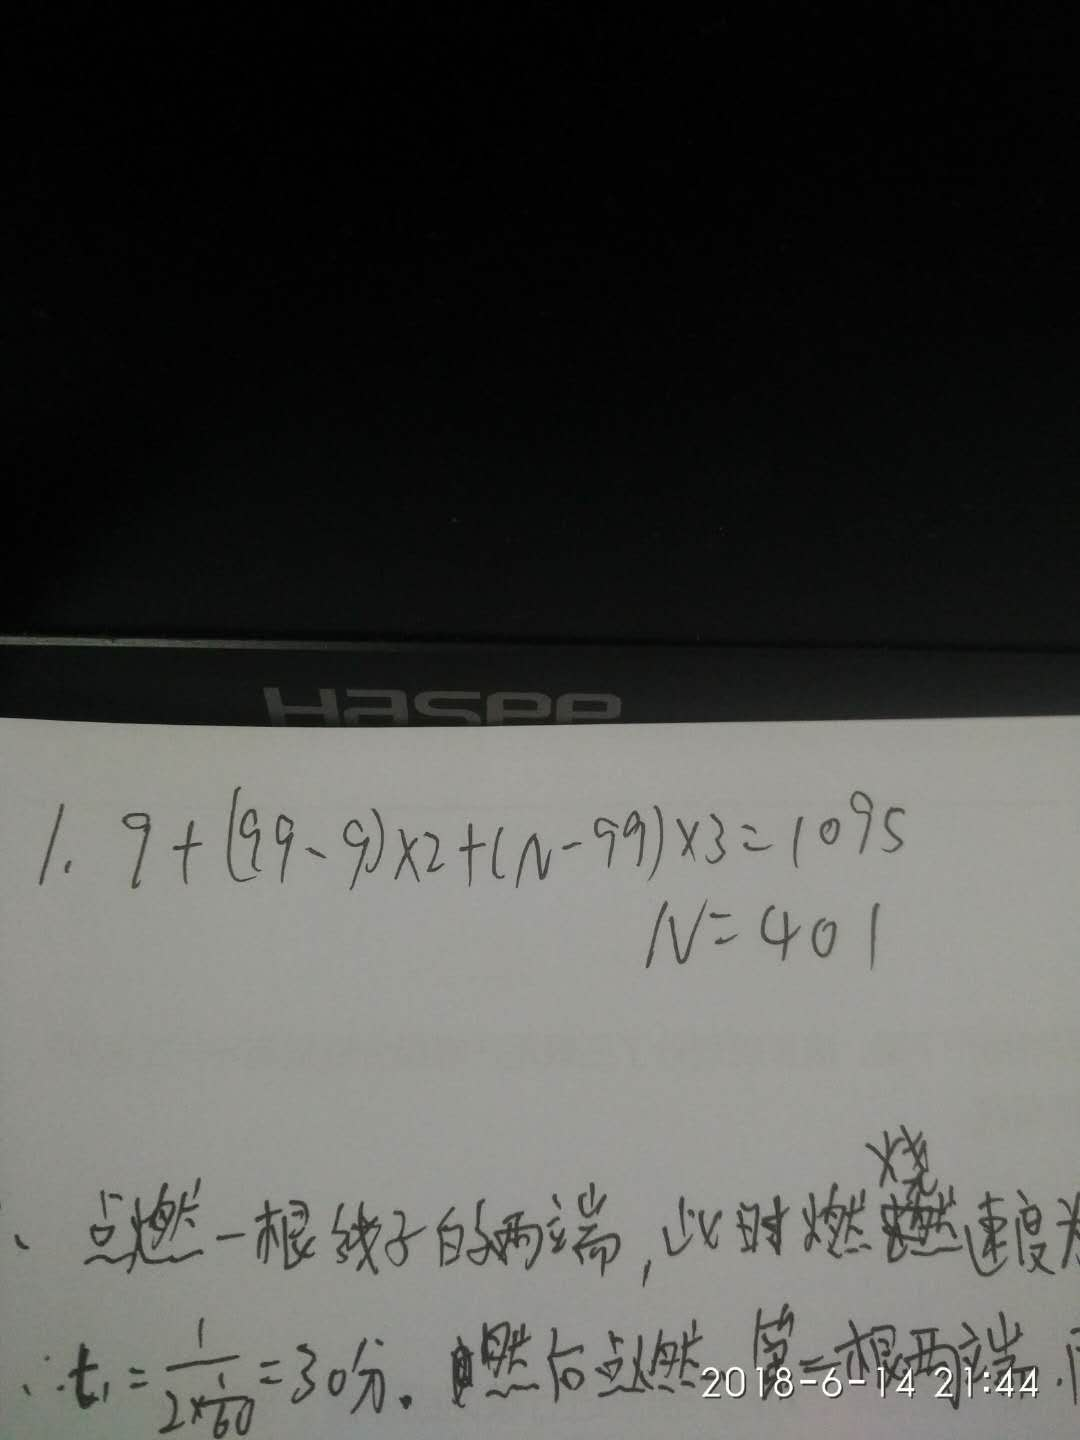 Hasee
1. 9+(99-9)×2+(N-99)×3=1095
N=401
烧
、点燃一根线子的两端,此时燃速度为
∴t₁=1/(2×1/60)=30分. 然后点燃第一根两端.
2018-6-14 21:44